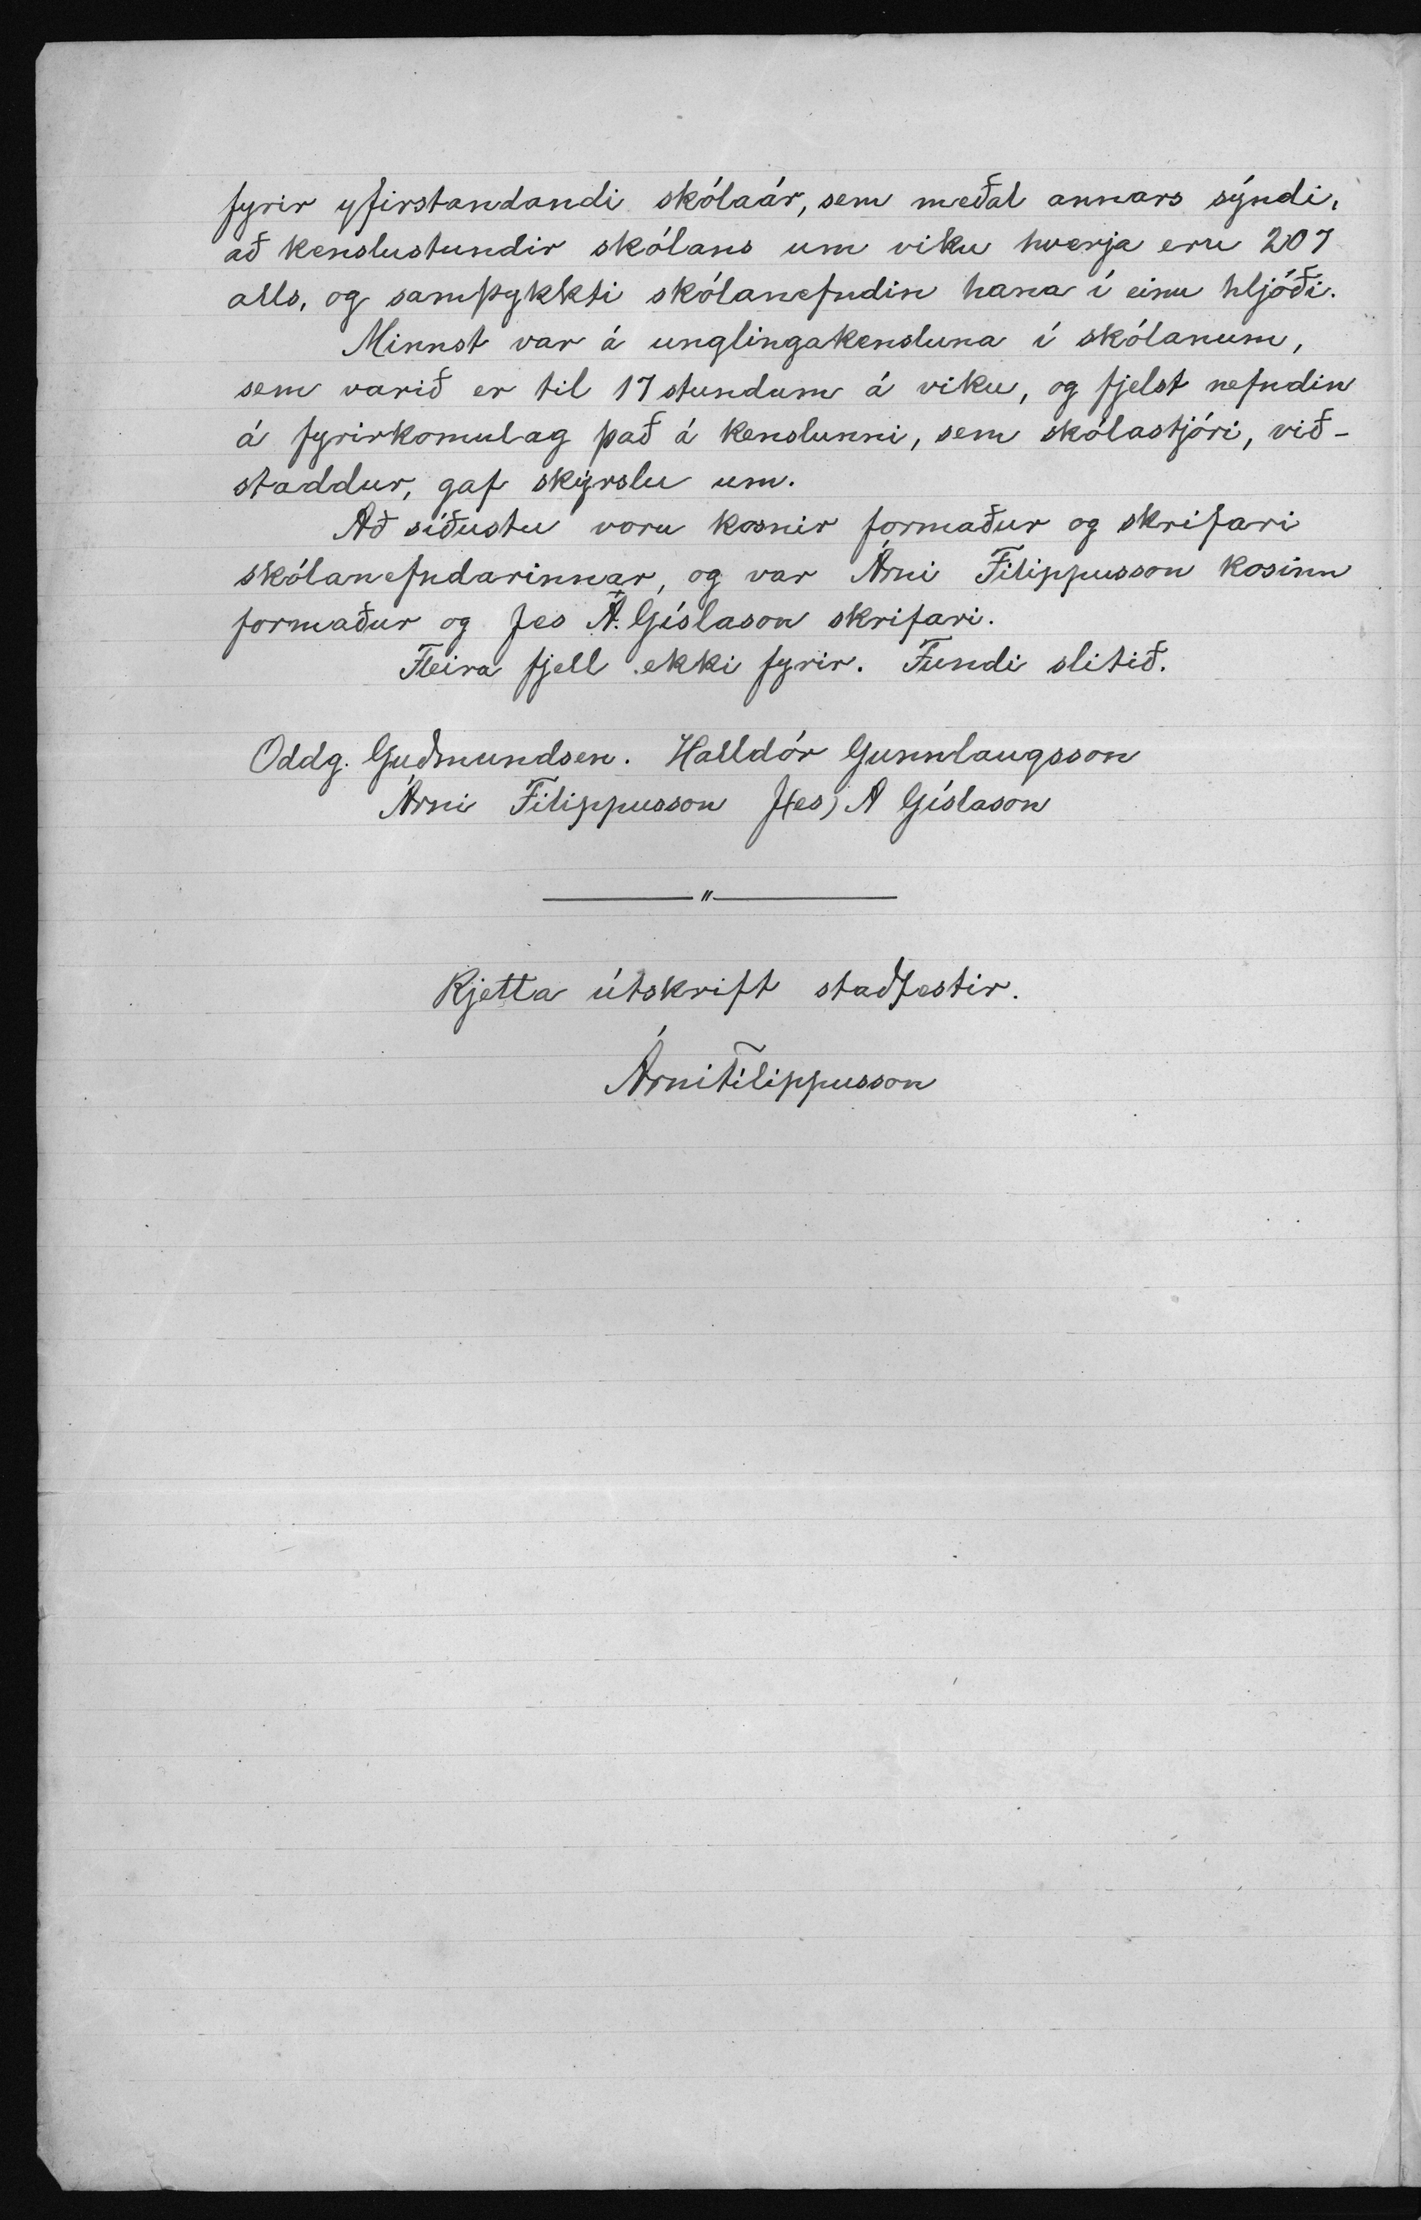 fyrir yfirstandandi skólaár, sem meðal annars sýndi,
að kenslustundir skólans um viku hverja eru 207
alls, og samþykkti skólanefndin hana í einu hljóði.
Minnst var á unglingakensluna í skólanum,
sem varið er til 17 stundum á viku, og fjelst nefndin
á fyrirkomulag það á kenslunni, sem skólastjóri, við-
staddur, gaf skýrslu um.
Að síðustu voru kosnir formaður og skrifari
skólanefndarinnar, og var Árni Filippusson kosinn
formaður og Jes A. Gíslason skrifari.
Fleira fjell ekki fyrir. Fundi slitið.
Oddg. Guðmundsen. Halldór Gunnlaugsson
Árni Filippusson J(es) A Gíslason
"
Rjetta útskrift staðfestir.
Árni Filippusson